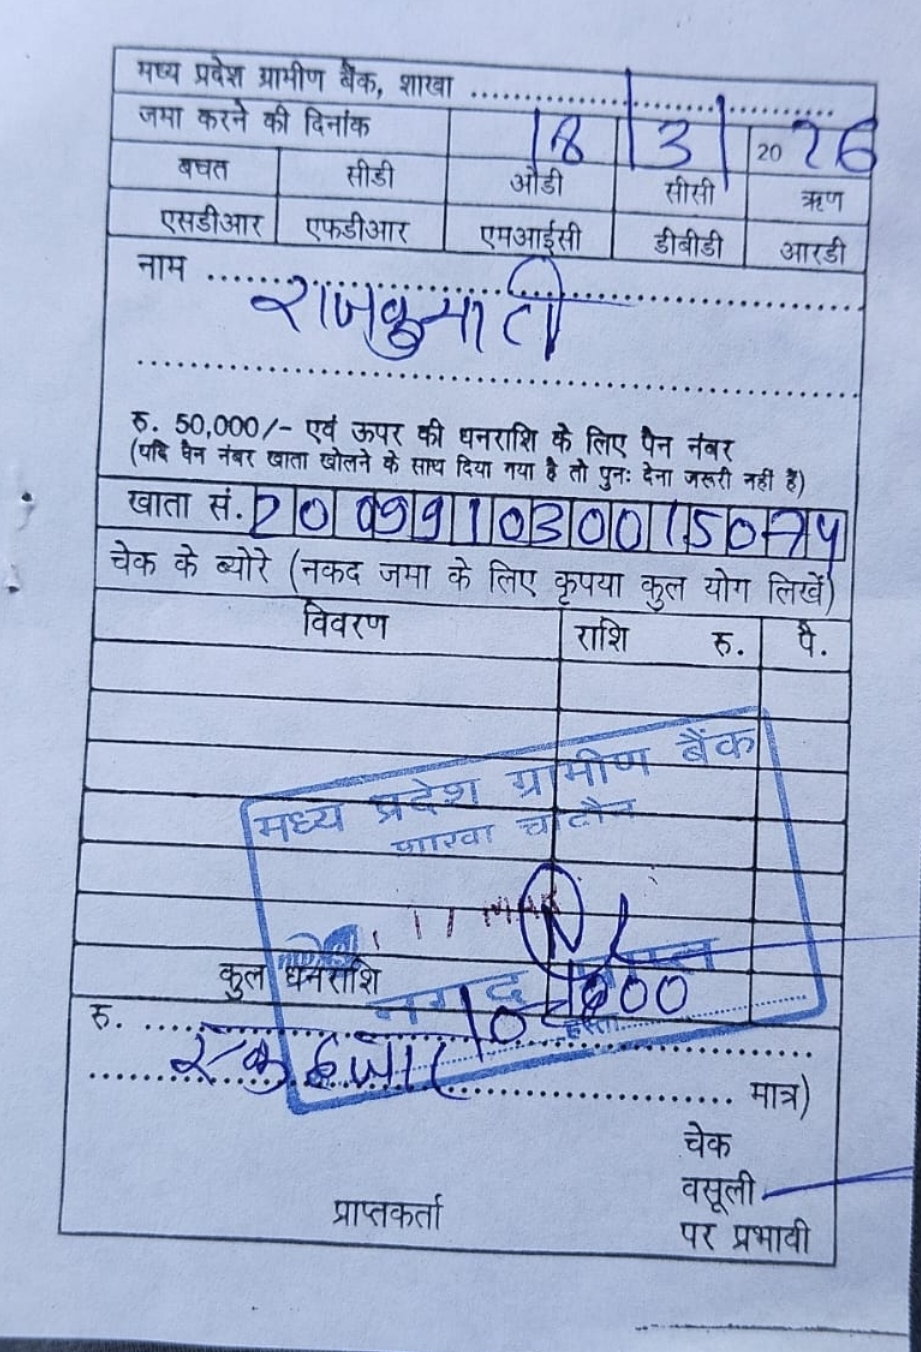 मध्य प्रदेश ग्रामीण बैंक, शाखा
जमा करने की दिनांक 18/3/2026
बचत सीडी ओडी सीसी ऋण
एसडीआर एफडीआर एमआईसी डीबीडी आरडी
नाम
राजकुमारी
रु. 50,000/- एवं ऊपर की धनराशि के लिए पैन नंबर
(यदि पैन नंबर खाता खोलने के साथ दिया गया है तो पुनः देना जरूरी नहीं है)
खाता सं.
चेक के ब्योरे (नकद जमा के लिए कृपया कुल योग लिखें)
विवरण राशि रु. पै.
मध्य प्रदेश ग्रामीण बैंक
शाखा
कुल धनराशि
नगद
रु.
एक हजार
मात्र)
चेक
वसूली
प्राप्तकर्ता पर प्रभावी